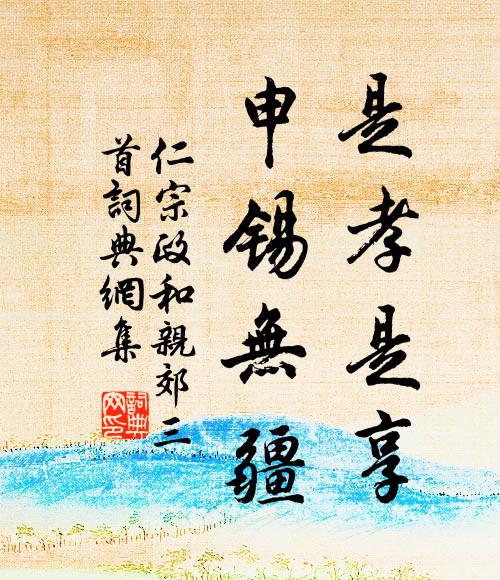 是孝是享
申錫無疆
仁宗政和親郊三
首詞典網集
詞典
网印